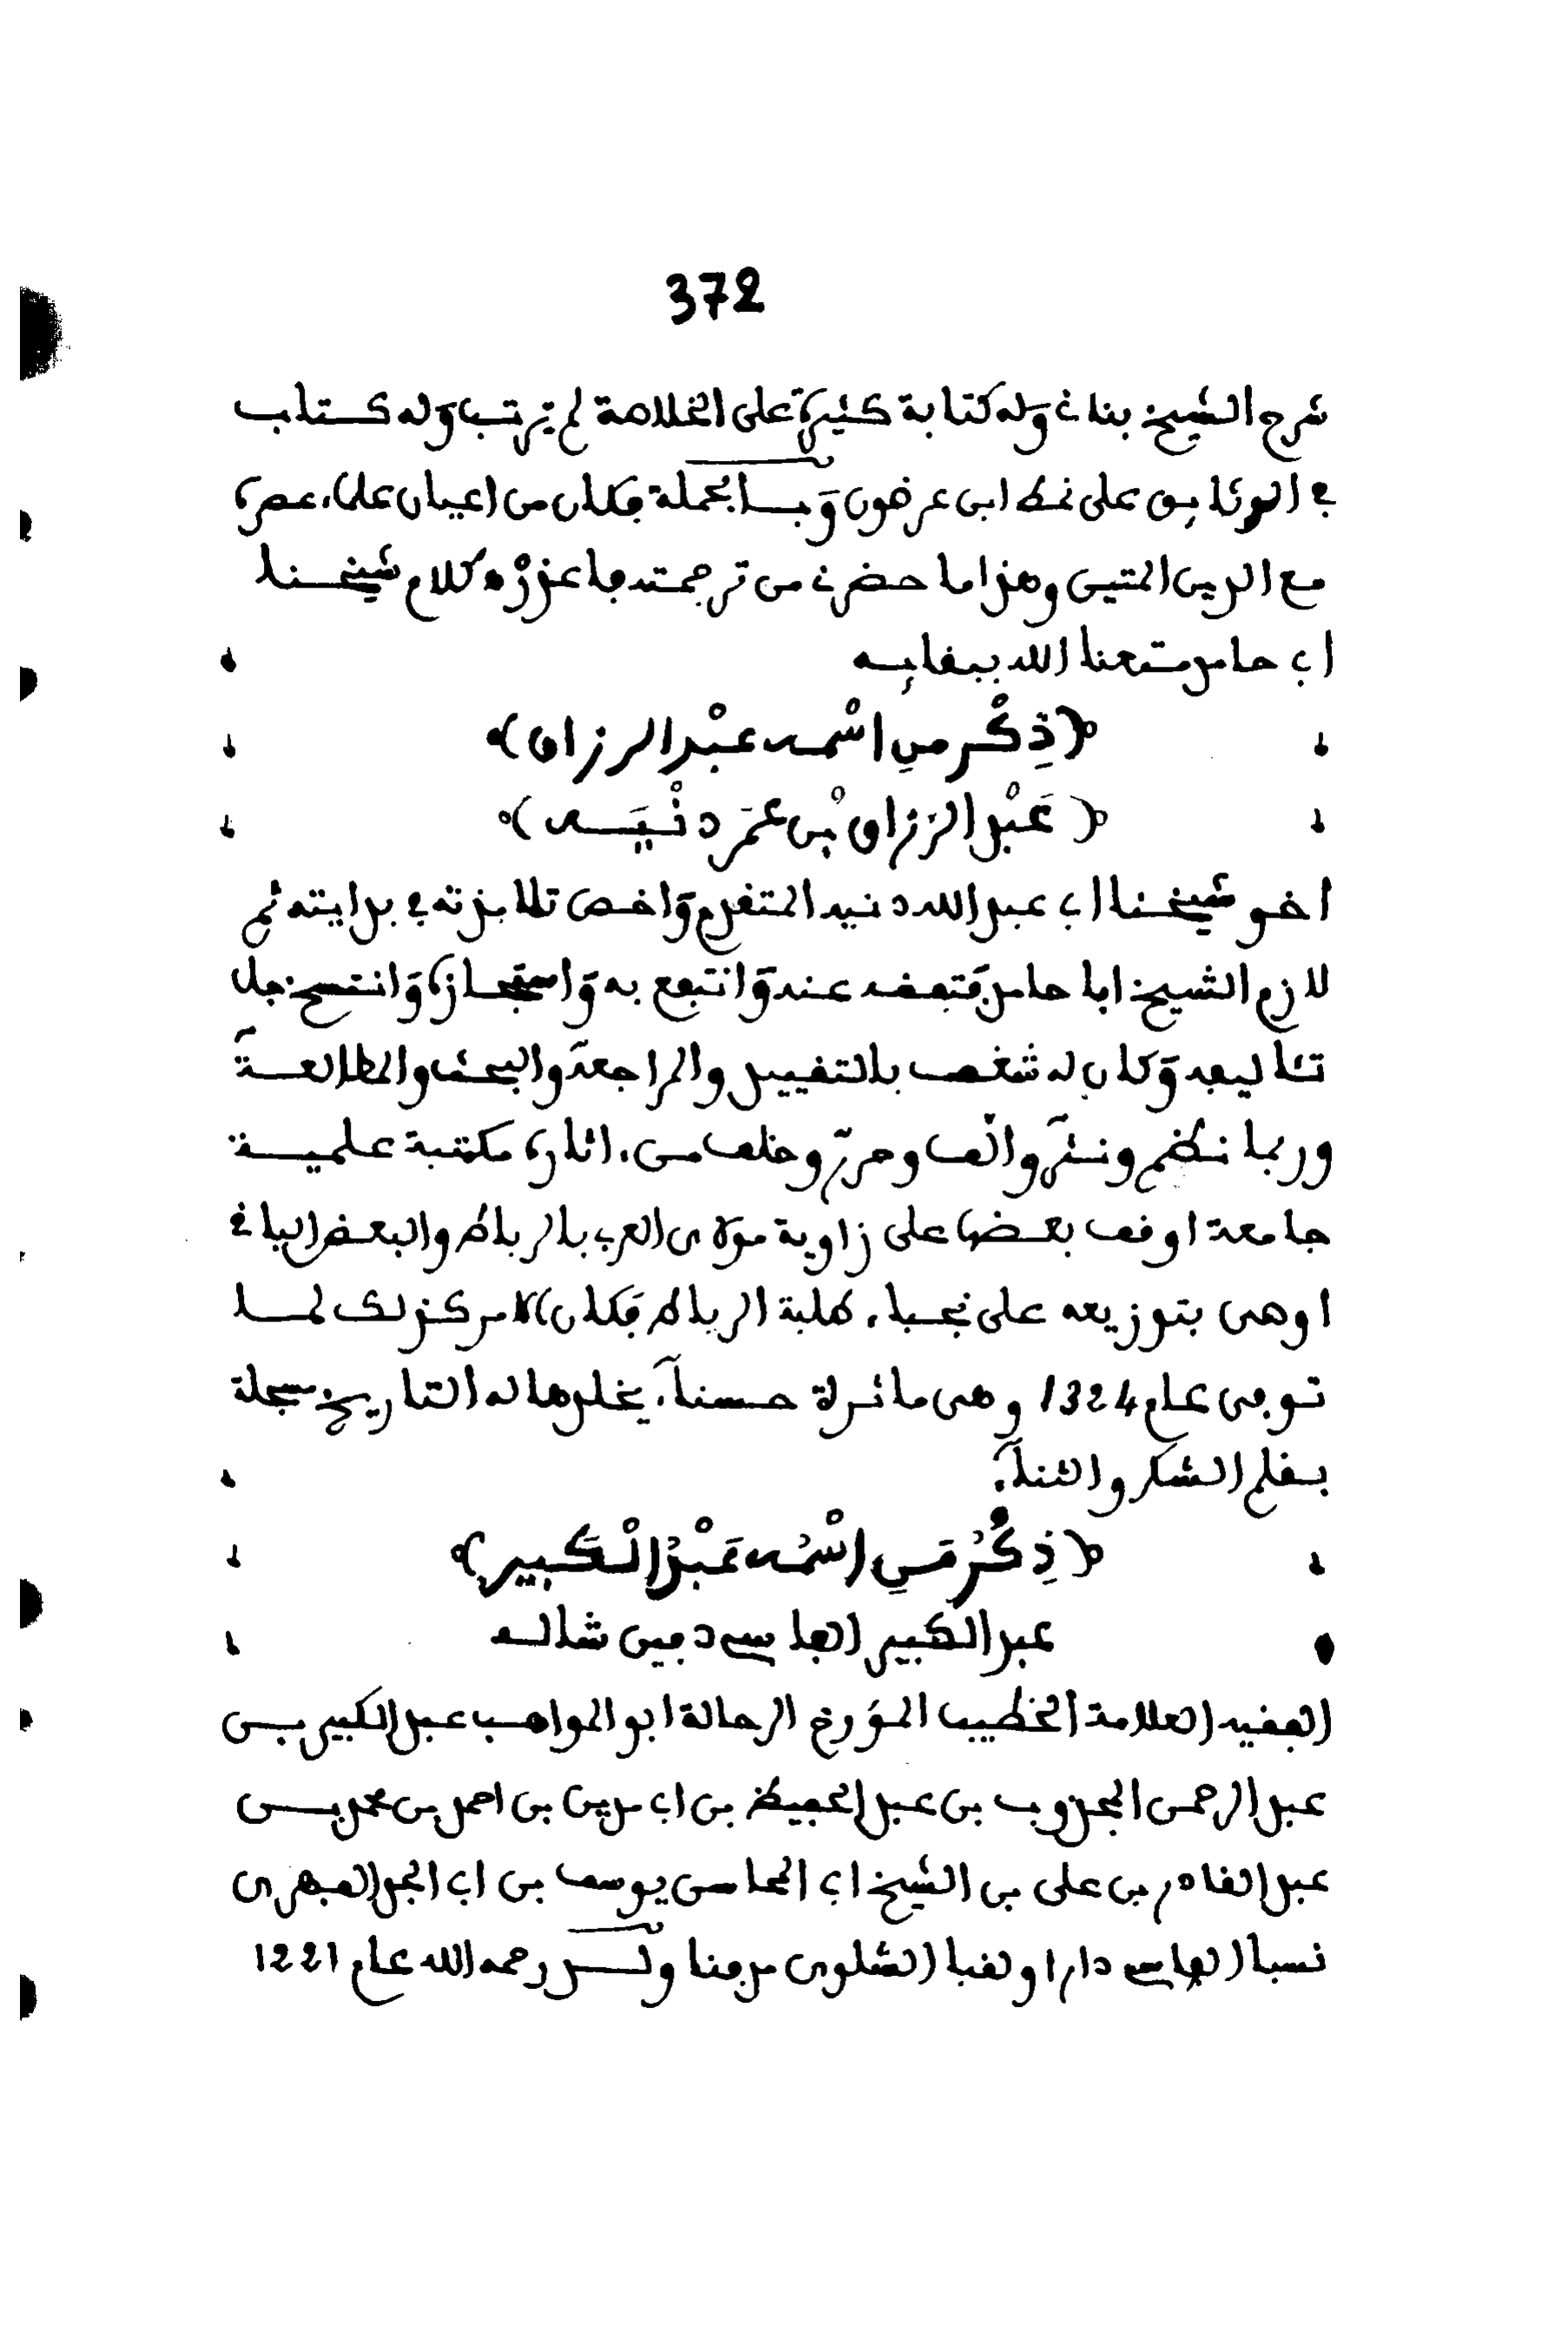 372
شرح الشيخ بنانى وله كتابة كثيرة على الخلاصة لم يرتب وله كتاب
في الوثايق على نمط ابى عرضون وبالجملة فكان من اعيان علماء عصره
مع الدين المتين وهذا ما حضرنى من ترجمته مما عززه كلام شيخنا
ابى حامد متعنا الله ببقايه
﴿ذِكْر من اسْمه عبْد الرزاق﴾
﴿عَبْد الرزاق بْن عمَر دنْيَه﴾
اخو شيخنا ابى عبد الله دنيه المتقدم واخص تلامذته في بدايته ثم
لازم الشيخ ابا حامد فتفقه عنه وانتفع به واستجازه وانتسخ جل
تئاليفه وكان له شغف بالتقييد والمراجعة والبحث والمطالعة
وربما نظم ونثر والف وحرر وخلف من ءاثاره مكتبة علمية
جامعة اوقف بعضها على زاوية مولاى العربى بالرباط والبعض الباقى
اوصى بتوزيعه على نجباء طلبة الرباط فكان الامر كذلك لما
توفى عام 1324 وهى ماثرة حسناء يخلدها له التاريخ مسجلة
بقلم الشكر والثناء
﴿ذِكْرُ مَنِ اسْمُه عَبْدُ الْكَبير﴾
عبد الكبير الفاسى دفين شاله
الفقيه العلامة الخطيب المؤرخ الرحالة ابو المواهب عبد الكبير بن
عبد الرحمن المجذوب بن عبد الحفيظ بن ابى مدين بن احمد بن محمد بن
عبد القادر بن على بن الشيخ ابى المحاسن يوسف بن ابى المجد الفهرى
نسبا الفاسى دارا ولقبا الشلوى مدفنا ولد رحمه الله عام 1221